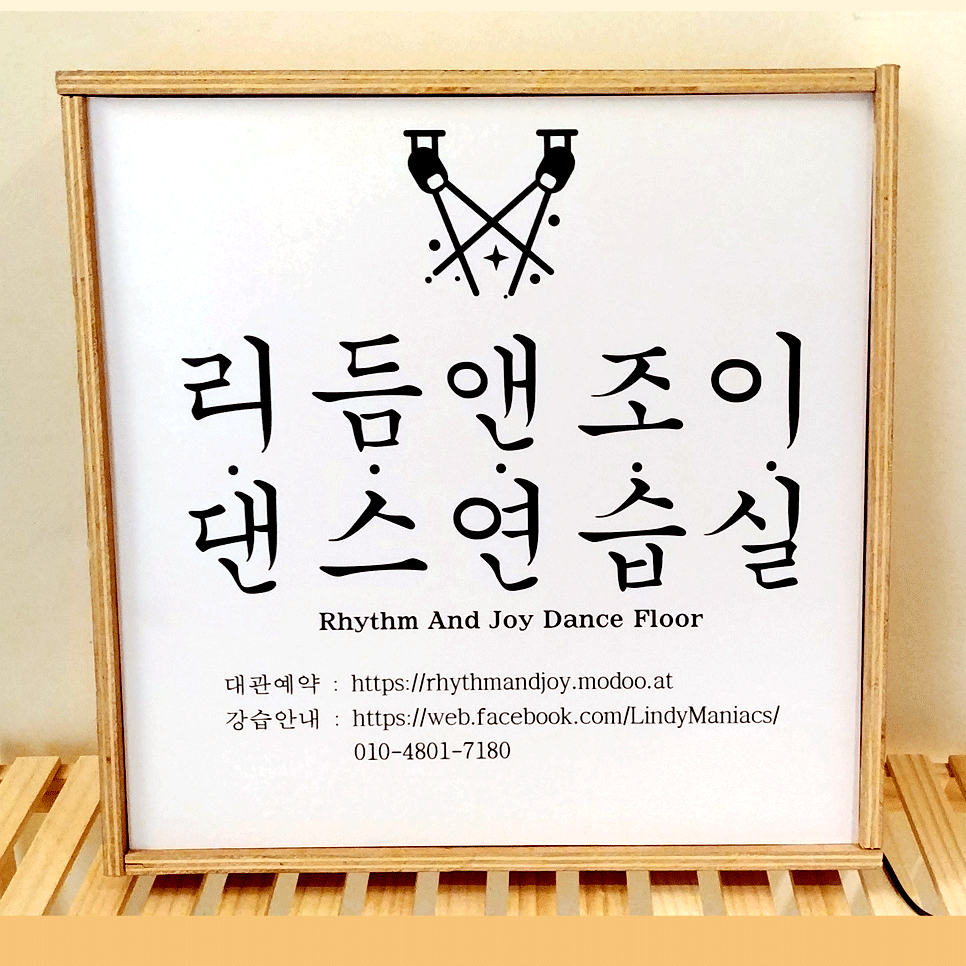 리듬앤조이
댄스연습실
Rhythm And Joy Dance Floor
대관예약 : https://rhythmandjoy.modoo.at
강습안내 : https://web.facebook.com/LindyManiacs/
010-4801-7180